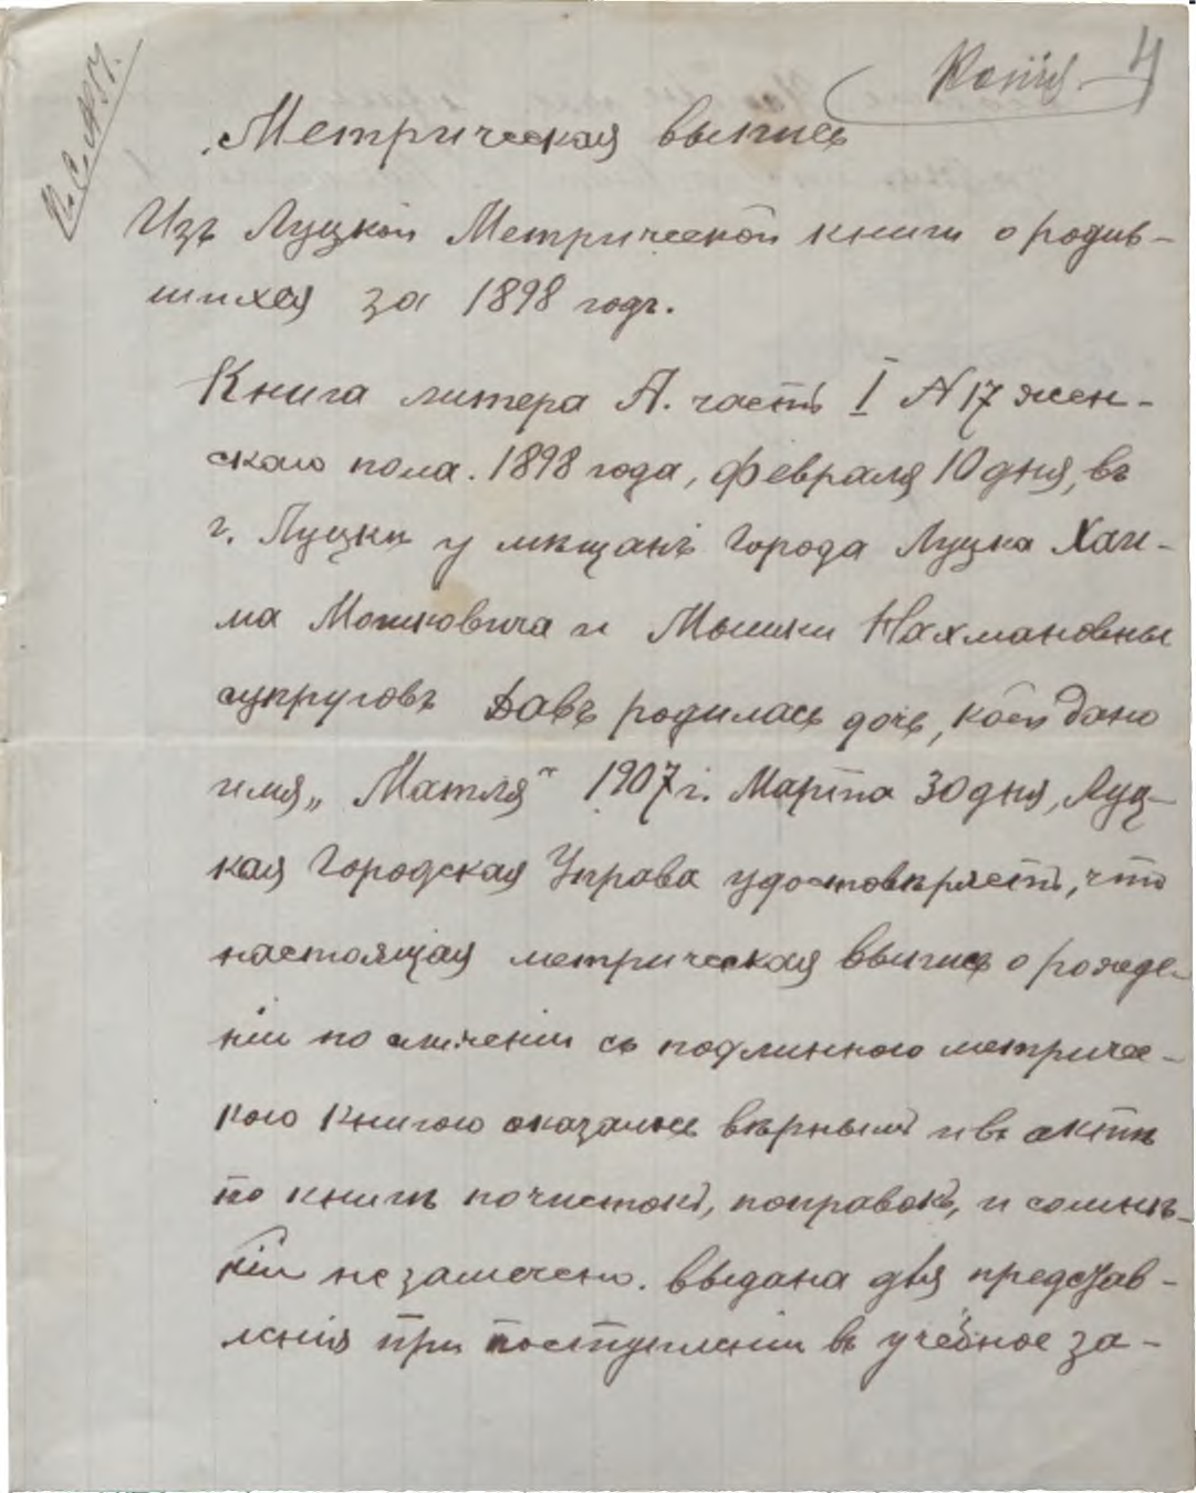 Копія 4
Метрическая выпись
Изъ Луцкой Метрической книги о родив-
шихся за 1898 годъ.
Книга литера А. часть I № 17 жен-
скаго пола. 1898 года, февраля 10 дня, въ
г. Луцкѣ у мѣщанъ города Луцка Хаи-
ма Мошковича и Мышки Нахмановны
супруговъ Бавъ родилась дочь, коей дано
имя „Матля“ 1907 г. Марта 30 дня, Луц-
кая Городская Управа удостовѣряетъ, что
настоящая метрическая выпись о рожде-
ніи по сличеніи съ подлинною метричес-
кою книгою оказалась вѣрнымъ и въ актѣ
по книгѣ почистокъ, поправокъ, и сомнѣ-
ній не замечено. выдана для представ-
ленія при поступленіи въ учебное за-